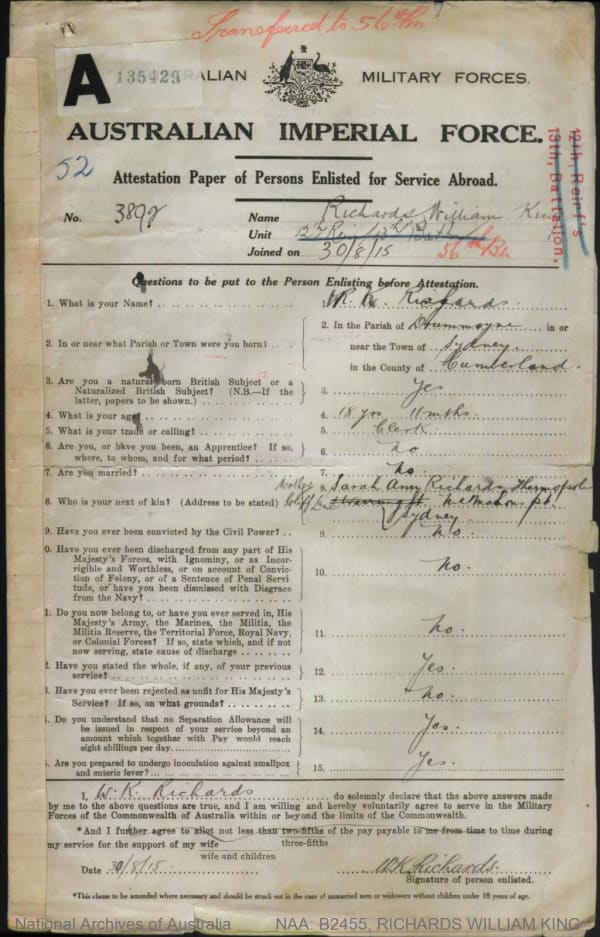 Transferred to 56th Bn
A 135429 ALIAN MILITARY FORCES.
AUSTRALIAN IMPERIAL FORCE.
52
12th, Reinf's
13th, Battalion.
Attestation Paper of Persons Enlisted for Service Abroad.
No. 3898 Name Richards William King
Unit 12th Reinf 13th Battn 56th Bn
Joined on 30/8/15
Questions to be put to the Person Enlisting before Attestation.
1. What is your Name? 1. W. K. Richards.
2. In or near what Parish or Town were you born? 2. In the Parish of Drummoyne in or
near the Town of Sydney
in the County of Cumberland.
3. Are you a natural born British Subject or a
Naturalized British Subject? (N.B.—If the
latter, papers to be shown.) 3. Yes
4. What is your age? 4. 18 yrs 11 mths.
5. What is your trade or calling? 5. Clerk.
6. Are you, or have you been, an Apprentice? If so,
where, to whom, and for what period? 6. No
7. Are you married? 7. No.
8. Who is your next of kin? (Address to be stated) 8. Sarah Amy Richards, Thermopol
McMahon Pt
Sydney
9. Have you ever been convicted by the Civil Power? 9. No.
0. Have you ever been discharged from any part of His
Majesty's Forces, with Ignominy, or as Incor-
rigible and Worthless, or on account of Convic-
tion of Felony, or of a Sentence of Penal Servi-
tude, or have you been dismissed with Disgrace
from the Navy? 10. No.
1. Do you now belong to, or have you ever served in, His
Majesty's Army, the Marines, the Militia, the
Militia Reserve, the Territorial Force, Royal Navy,
or Colonial Forces? If so, state which, and if not
now serving, state cause of discharge 11. No.
2. Have you stated the whole, if any, of your previous
service? 12. Yes.
3. Have you ever been rejected as unfit for His Majesty's
Service? If so, on what grounds? 13. No.
. Do you understand that no Separation Allowance will
be issued in respect of your service beyond an
amount which together with Pay would reach
eight shillings per day. 14. Yes.
. Are you prepared to undergo inoculation against smallpox
and enteric fever? 15. Yes.
I, W. K. Richards do solemnly declare that the above answers made
by me to the above questions are true, and I am willing and hereby voluntarily agree to serve in the Military
Forces of the Commonwealth of Australia within or beyond the limits of the Commonwealth.
*And I further agree to allot not less than two-fifths of the pay payable to me from time to time during
three-fifths
my service for the support of my wife
wife and children
Date 30/8/15. W K Richards.
Signature of person enlisted.
*This clause to be amended where necessary and should be struck out in the case of unmarried men or widowers without children under 18 years of age.
National Archives of Australia NAA: B2455, RICHARDS WILLIAM KING